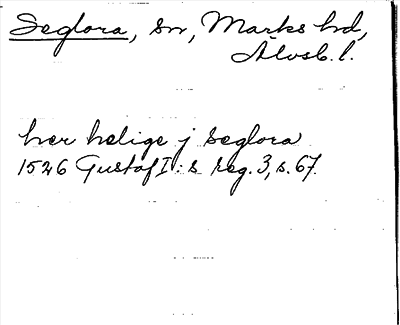 Seglora, sn, Marks hd,
Älvsb. l.
her helige j seglora
1526 Gustaf I:s reg. 3, s. 67.